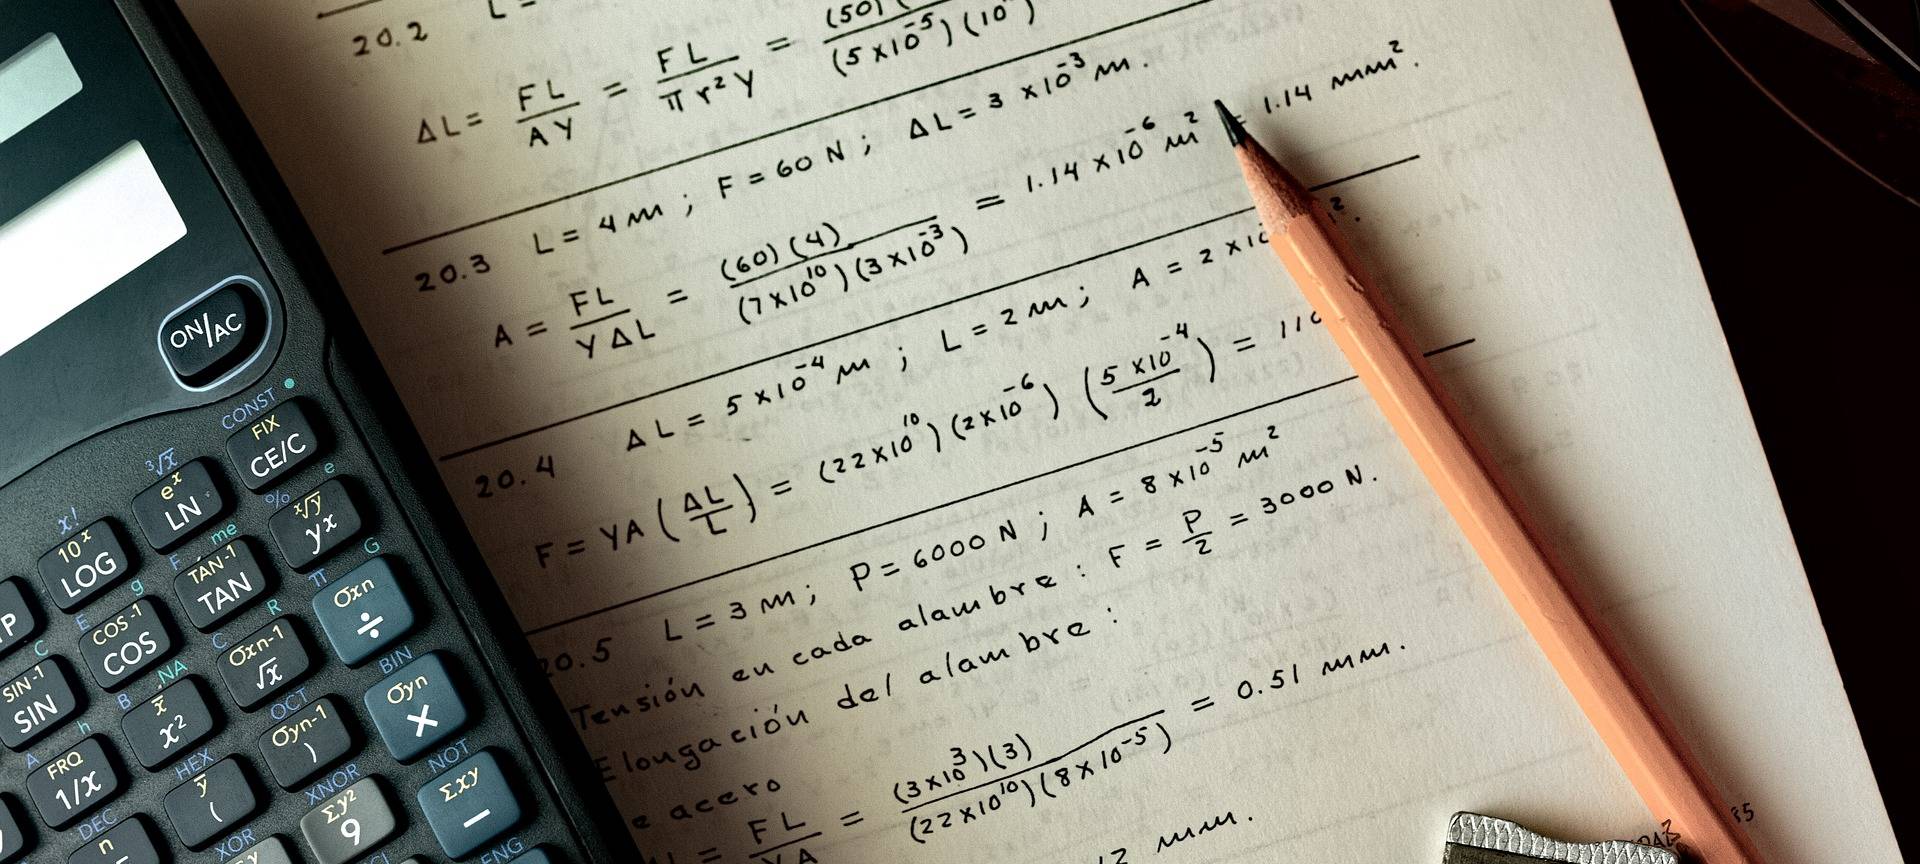 20.2 L =
ΔL = FL / AY = FL / πr²Y = (50) ( / (5 × 10⁻⁵) (10 )
20.3 L = 4 m ; F = 60 N ; ΔL = 3 × 10⁻³ m.
A = FL / YΔL = (60) (4) / (7 × 10¹⁰) (3 × 10⁻³) = 1.14 × 10⁻⁶ m² = 1.14 mm².
20.4 ΔL = 5 × 10⁻⁴ m ; L = 2 m ; A = 2 × 10 ².
F = YA (ΔL / L) = (22 × 10¹⁰) (2 × 10⁻⁶) (5 × 10⁻⁴ / 2) = 110
20.5 L = 3 m ; P = 6000 N ; A = 8 × 10⁻⁵ m²
Tensión en cada alambre : F = P / 2 = 3000 N.
Elongación del alambre :
acero
= FL / YA = (3 × 10³) (3) / (22 × 10¹⁰) (8 × 10⁻⁵) = 0.51 mm.
mm.
35
ON/AC
CONST
FIX
CE/C
³√x
eˣ
LN
%
e
ˣ√y
yˣ
x!
10ˣ
LOG
F
me
TAN⁻¹
TAN
π
G
σxn
÷
P
g
E
COS⁻¹
COS
C
R
σxn-1
√x
BIN
σyn
×
C
SIN⁻¹
SIN
B
NA
x̄
x²
OCT
σyn-1
)
NOT
Σxy
−
A
h
FRQ
1/x
HEX
ȳ
(
XNOR
Σy²
9
DEC
n
XOR
ENG